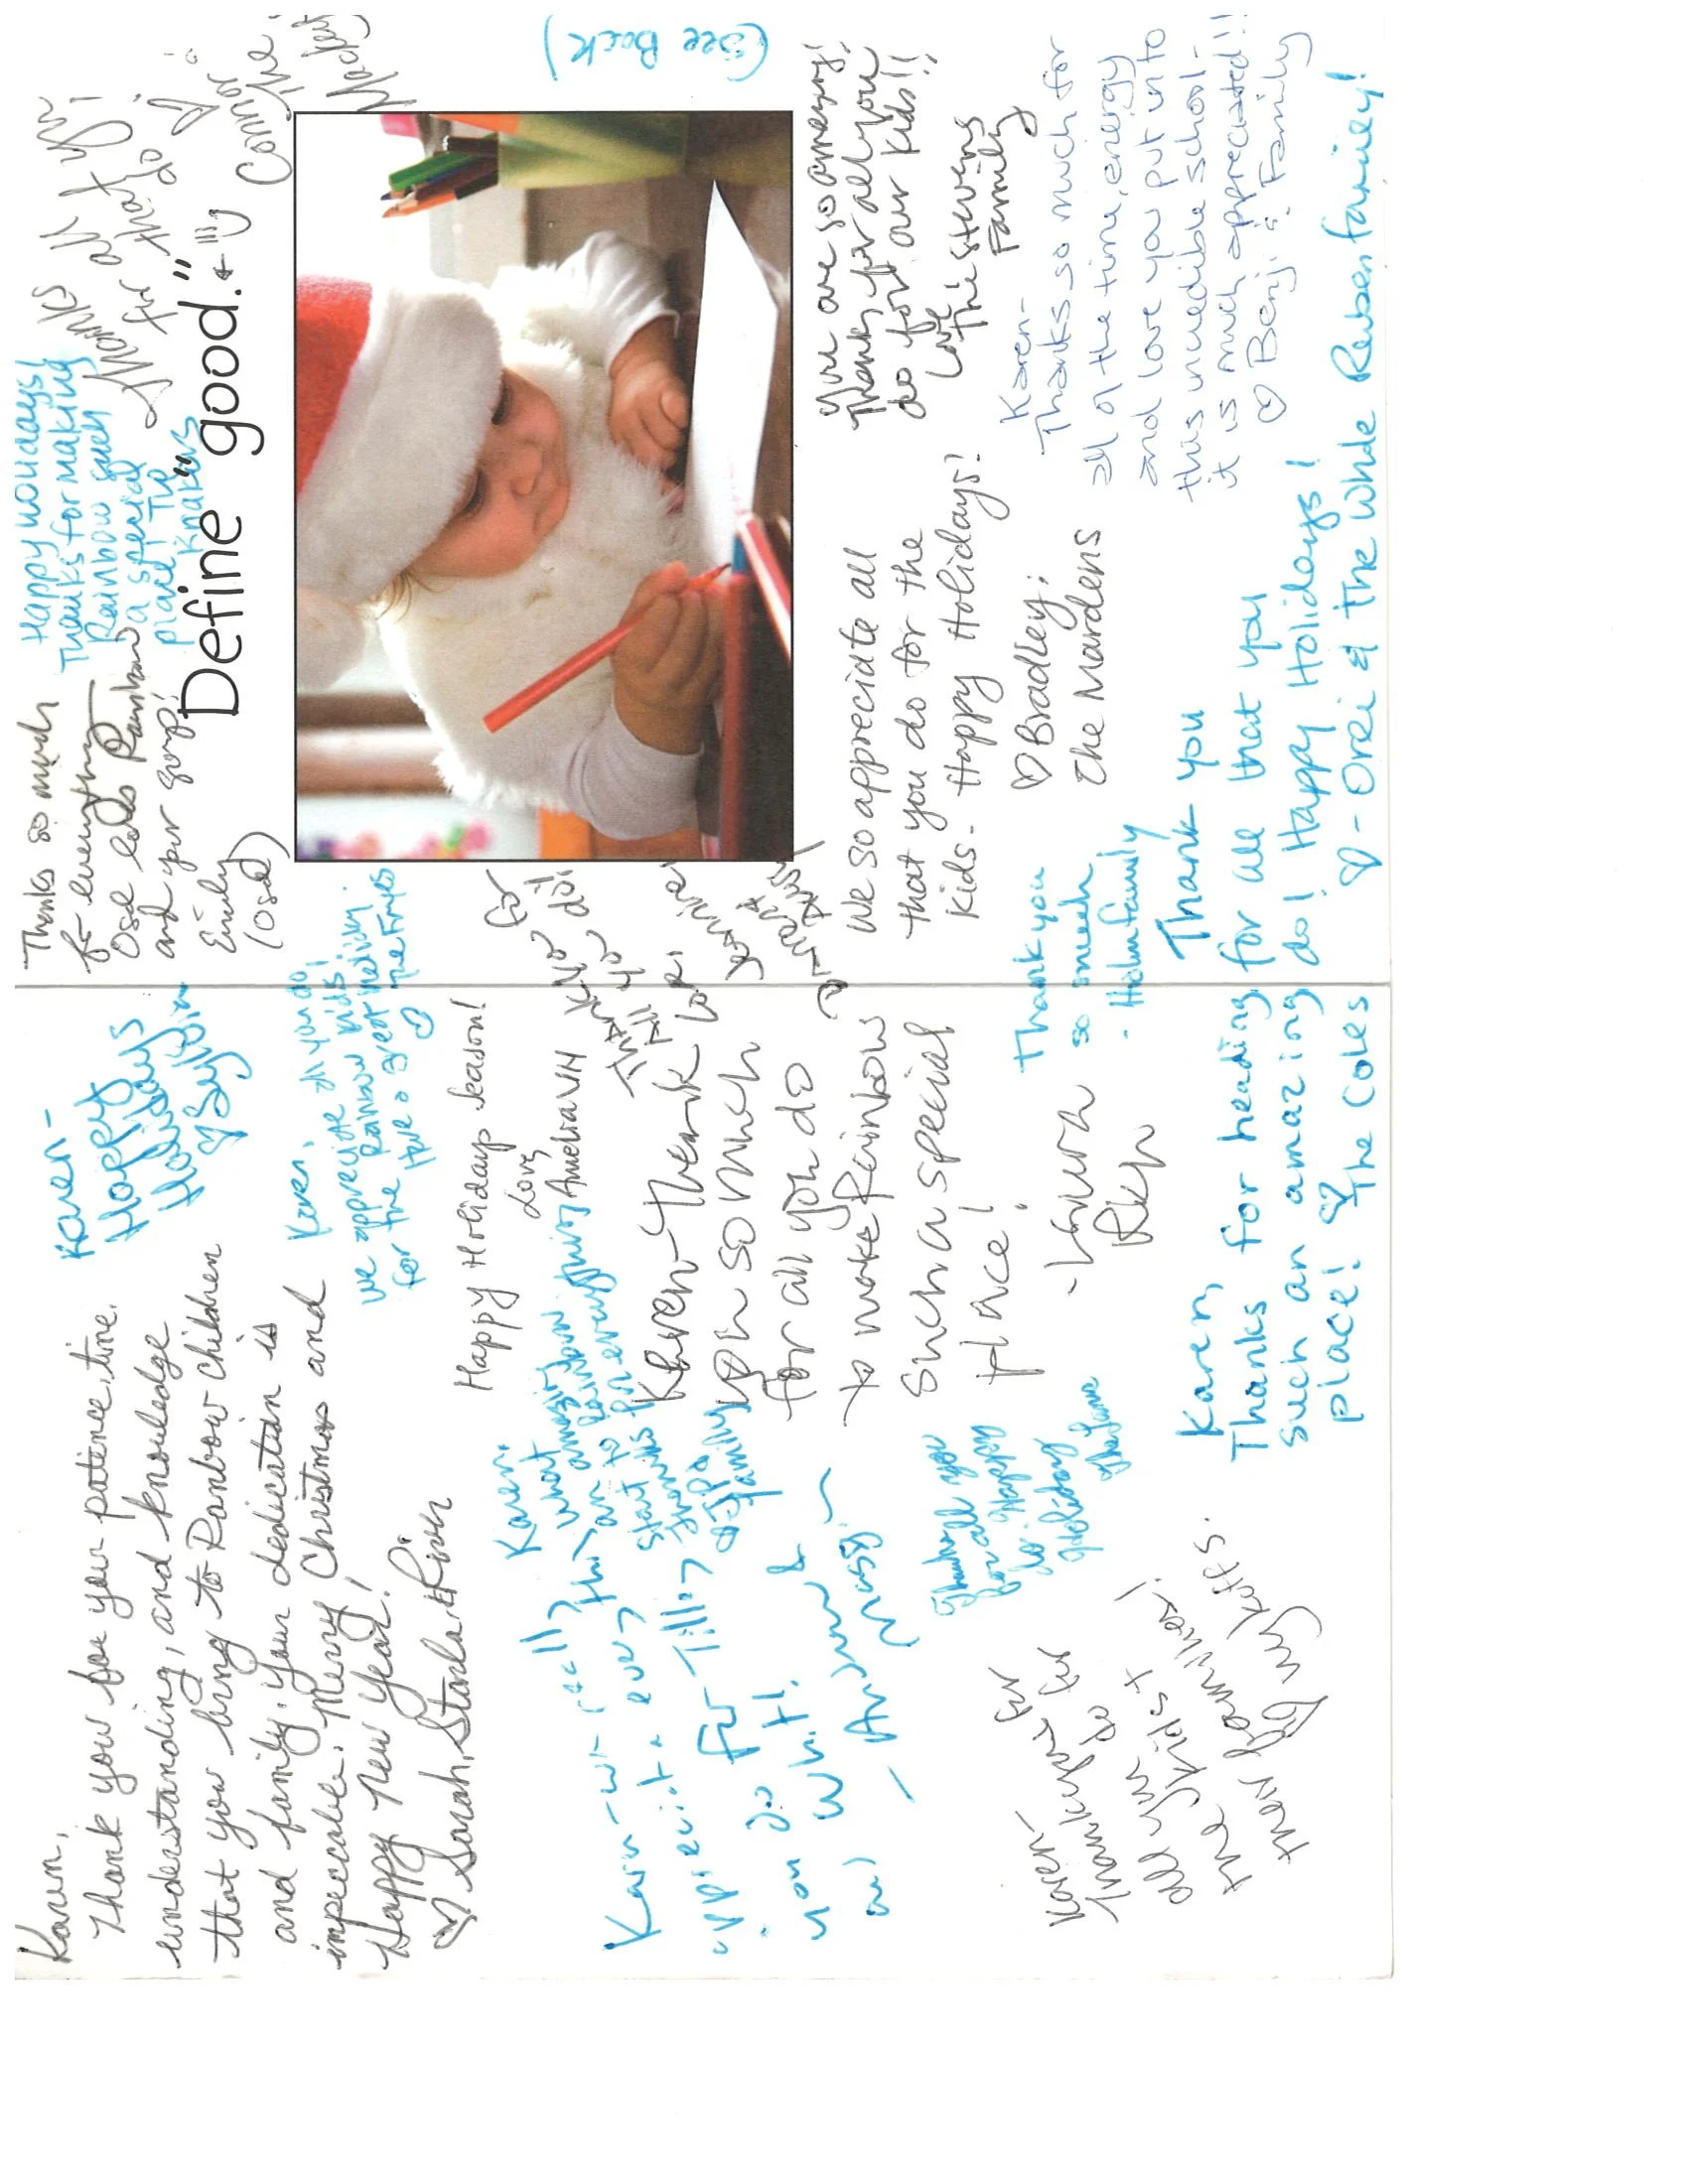 Karen,
Thank you for your patience, time,
understanding, and knowledge
that you bring to Rainbow children
and family. Your dedication is
impeccable. Merry Christmas and
Happy New Year!
♡ Sarah, Starla, & River
Karen-
Happy
Holidays
♡ Sylvia
Karen,
We appreciate all you do
for the Rainbow kids!
Have a great holiday.
The Fries
Happy Holiday Season!
Love,
Amelia VH
Karen,
What
an amazing
start to
Thanks for everything
family
Karen - we really
appreciate every thing
you do for Tilly
Karen - Thank
you so much
for all you do
to make Rainbow
such a special
place!
- Laura
Thank you
for all you
do. Happy
Holiday
The
Karen-
Thank you for
all you do for
the kids &
their families!
Karen,
Thanks for heading
such an amazing
place! ♡ The Coles
Thanks so much
for everything
Ose loves Rainbow
and your songs!
Emily
(Ose)
Happy Holidays!
Thanks for making
Rainbow such
a special
place! The
Knakes
Thanks
for all
that you
do!
♡
Connor
"Define good."
(See Back)
Thank you for
all you do!
Love,
You are so amazing!
Thanks for all you
do for our kids!!
Love
The Stevens
Family
We so appreciate all
that you do for the
kids - Happy Holidays!
♡ Bradley &
The Mardens
Karen-
Thanks so much for
all of the time, energy
and love you put into
this incredible school-
it is much appreciated!!
♡ Benji & Family
Thank you
so much
- Holm family
Thank you
for all that you
do! Happy Holidays!
♡ - Orei & the whole Ruben family!